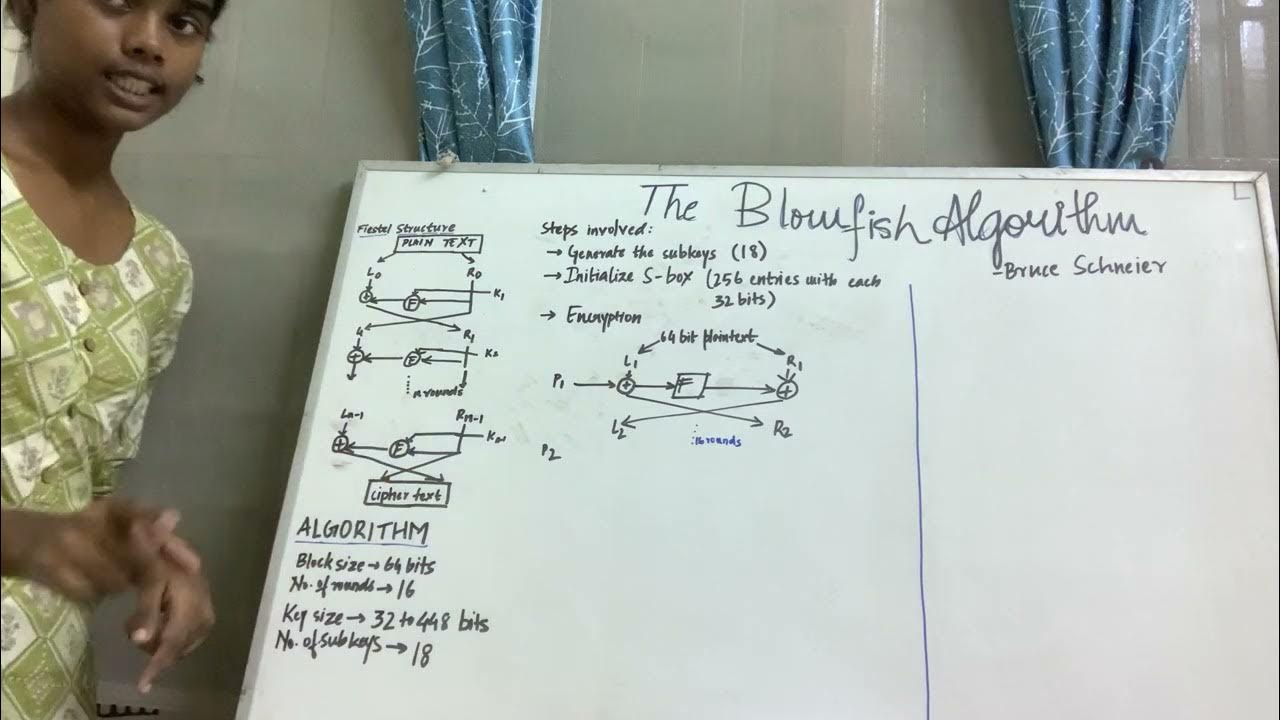 The Blowfish Algorithm
-Bruce Schneier
Fiestel Structure
PLAIN TEXT
L0 R0
+ F K1
L1 R1
+ F K2
n rounds
Ln-1 Rn-1
+ F
cipher text
ALGORITHM
Block size → 64 bits
No. of rounds → 16
Key size → 32 to 448 bits
No. of subkeys → 18
Steps involved:
→ Generate the subkeys (18)
→ Initialize S-box (256 entries with each
32 bits)
→ Encryption
64 bit plaintext
L1 R1
P1 + F +
L2 R2
16 rounds
P2